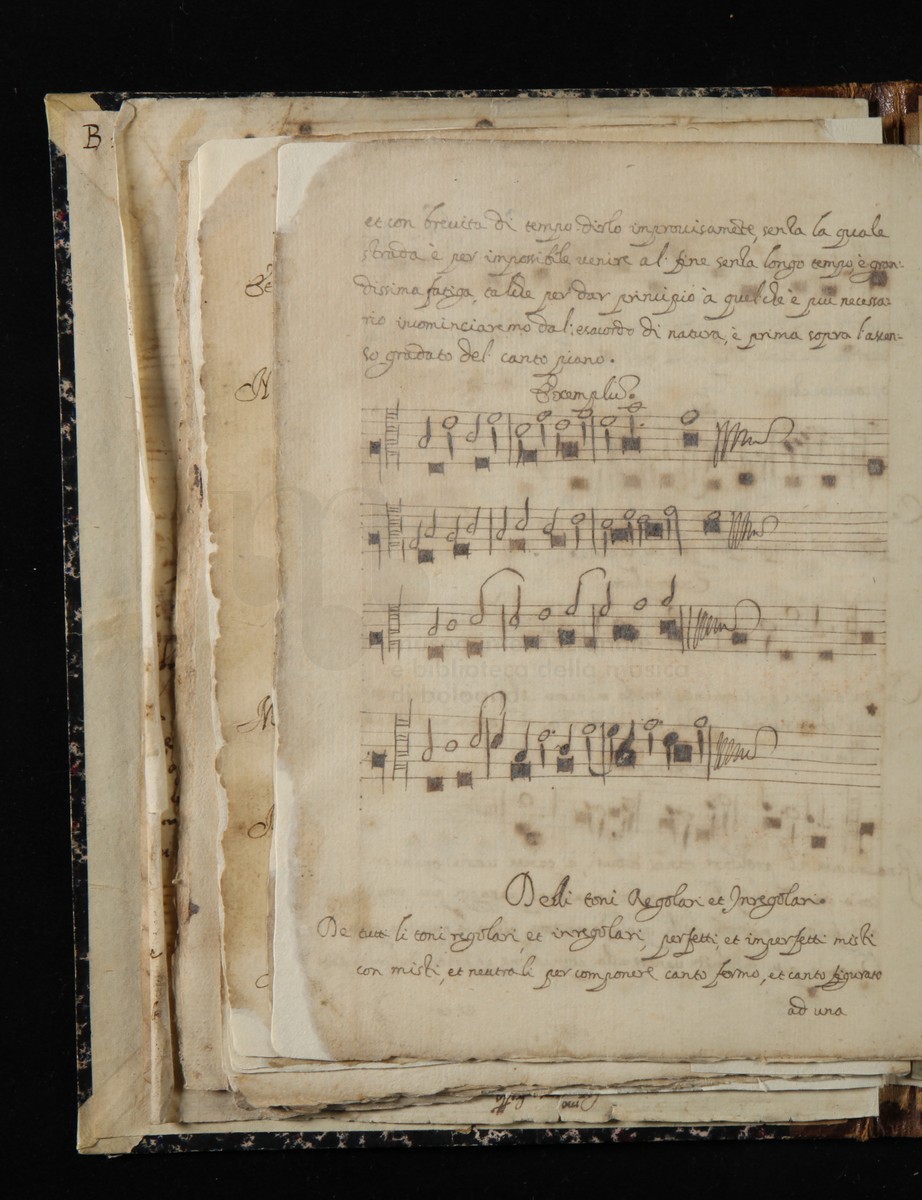 B
et con brevita di tempo dirlo improuisamēte, senza la quale
strada è per impossibile uenire al fine senza longo tempo, è gran-
dissima fatiga, talche per dar principio à quel che è più necessa-
rio incominciaremo dal esacordo di natura, è prima sopra l'ascen-
so gradato del canto piano.
Exemplu.
e biblioteca della musica
di bologna
Delli toni Regolari et Inregolari.
De tutti li toni regolari, et inregolari, perfetti, et imperfetti misti
con misti, et neutrali per componere canto fermo, et canto figurato
ad una